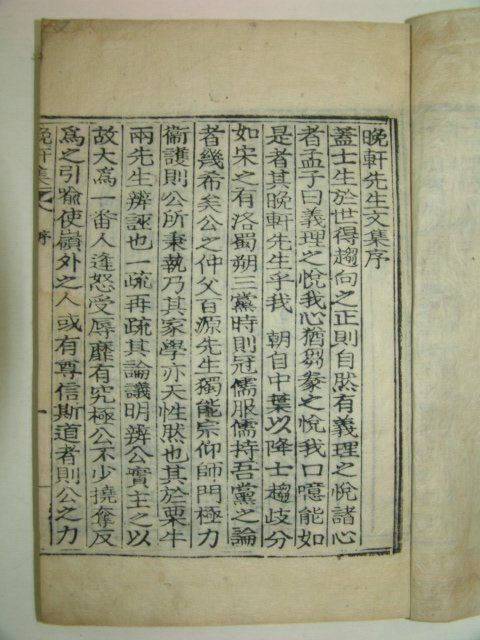 晚軒先生文集序
盖士生於世得趨向之正則自然有義理之悅諸心
者孟子曰義理之悅我心猶芻豢之悅我口噫能如
是者其晚軒先生乎我 朝自中葉以降士趨歧分
如宋之有洛蜀朔三黨時則冠儒服儒持吾黨之論
者幾希矣公之仲父百源先生獨能宗仰師門極力
衛護則公所秉執乃其家學亦天性然也其於栗牛
兩先生辨誣也一疏再疏其論議明辨公實主之以
故大爲一番人逢怒受辱靡有究極公不少撓奪反
爲之引喩使嶺外之人或有尊信斯道者則公之力
晚軒集 序 一